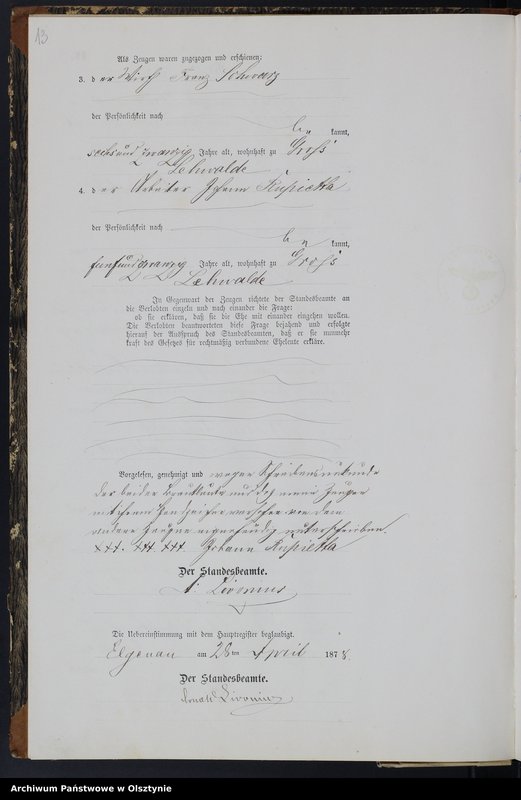 13
Als Zeugen waren zugezogen und erschienen:
3. der Wirth Franz Schwarz
der Persönlichkeit nach
be kannt,
sechsundzwanzig Jahre alt, wohnhaft zu Groß
Lehwalde
4. der Arbeiter Johann Kupietka
der Persönlichkeit nach
be kannt,
fünfundzwanzig Jahre alt, wohnhaft zu Groß
Lehwalde
In Gegenwart der Zeugen richtete der Standesbeamte an
die Verlobten einzeln und nach einander die Frage:
ob sie erklären, daß sie die Ehe mit einander eingehen wollen.
Die Verlobten beantworteten diese Frage bejahend und erfolgte
hierauf der Ausspruch des Standesbeamten, daß er sie nunmehr
kraft des Gesetzes für rechtmäßig verbundene Eheleute erkläre.
Vorgelesen, genehmigt und wegen Schreibensunkunde
der beiden Brautleute und des Zeugen
mit ihrem Handzeichen versehen von dem
andern Zeugen eigenhändig unterschrieben.
+++. +++. +++. Johann Kupietka
Der Standesbeamte.
Livonius
Die Uebereinstimmung mit dem Hauptregister beglaubigt.
Elgenau am 28ten April 1878
Der Standesbeamte.
Livonius
Archiwum Państwowe w Olsztynie